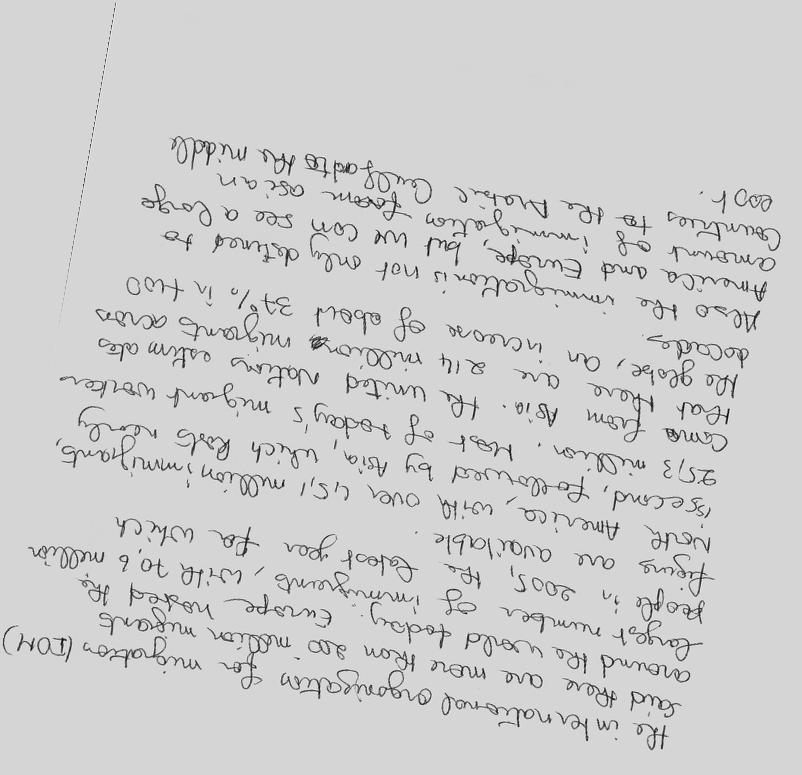 the international organization for migration (IOM)
said there are more than 200 million migrants
around the world today. Europe hosted the
largest number of immigrants, with 70,6 million
people in 2005, the latest year for which
figures are available.
North America, with over 45,1 million immigrants,
is second, followed by Asia, which hosts nearly
25,3 million. Most of today's migrant workers
come from Asia. the united Nations estimates
that there are 214 millions migrants across
the globe, an increase of about 37% in two
decades.
Also the immigration is not only destined to
America and Europe, but we can see a large
amount of immigration from asian
Countries to the Arabic Gulf and to the middle
east.